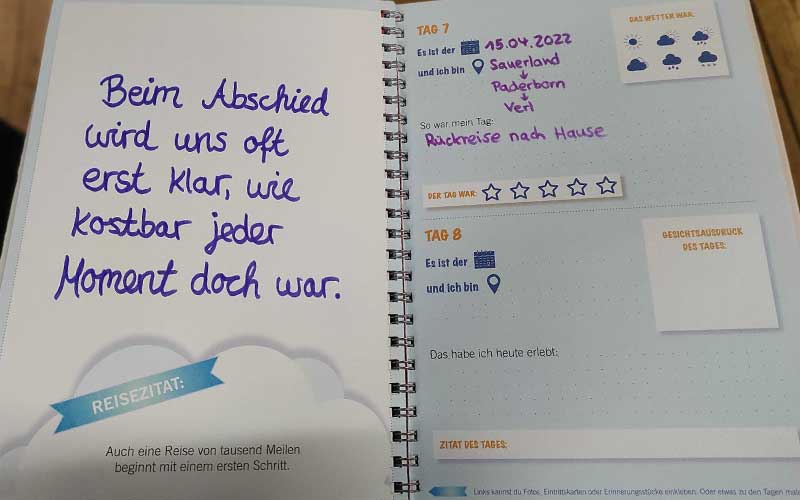 Beim Abschied
wird uns oft
erst klar, wie
kostbar jeder
Moment doch war.
REISEZITAT:
Auch eine Reise von tausend Meilen
beginnt mit einem ersten Schritt.
TAG 7
Es ist der 15.04.2022
und ich bin Sauerland
↓
Paderborn
↓
Verl
DAS WETTER WAR:
So war mein Tag:
Rückreise nach Hause
DER TAG WAR:
TAG 8
Es ist der
und ich bin
GESICHTSAUSDRUCK
DES TAGES:
Das habe ich heute erlebt:
ZITAT DES TAGES:
Links kannst du Fotos, Eintrittskarten oder Erinnerungsstücke einkleben. Oder etwas zu den Tagen